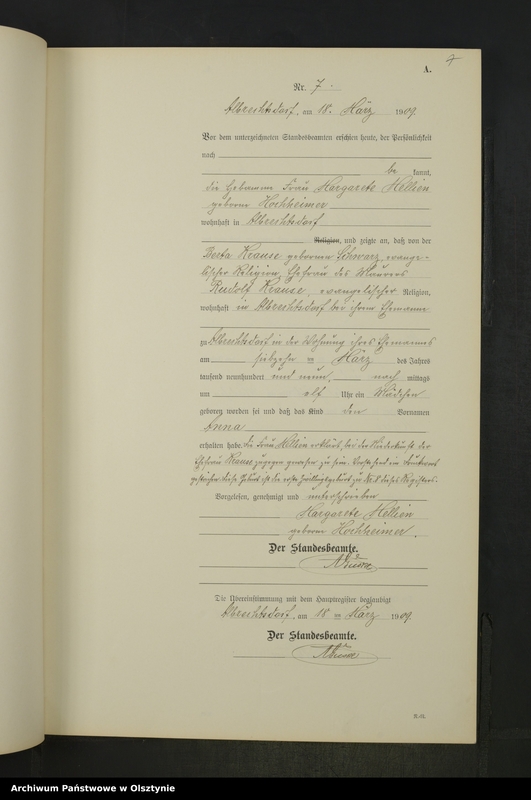 A. 4
Nr. 7.
Albrechtsdorf, am 18. März 1909.
Vor dem unterzeichneten Standesbeamten erschien heute, der Persönlichkeit
nach
be kannt,
die Hebamme Frau Margarete Hellien
geborne Hochheimer
wohnhaft in Albrechtsdorf
Religion, und zeigte an, daß von der
Berta Krause geborenen Schwarz, evange-
lischer Religion, Ehefrau des Maurers
Rudolf Krause, evangelischer Religion,
wohnhaft in Albrechtsdorf bei ihrem Ehemanne
zu Albrechtsdorf in der Wohnung ihres Ehemannes
am siebzehn ten März des Jahres
tausend neunhundert und neun, nach mittags
um elf Uhr ein Mädchen
geboren worden sei und daß das Kind den Vornamen
Anna
erhalten habe. Die Frau Hellien erklärt, bei der Niederkunft der
Ehefrau Krause zugegen gewesen zu sein. Vorstehend ein Druckwort
gestrichen. Diese Geburt ist die erste Zwillingsgeburt zu Nr. 8 dieses Registers.
Vorgelesen, genehmigt und unterschrieben
Margarete Hellien
geborne Hochheimer.
Der Standesbeamte.
Die Übereinstimmung mit dem Hauptregister beglaubigt
Albrechtsdorf, am 18 ten März 1909.
Der Standesbeamte.
Archiwum Państwowe w Olsztynie